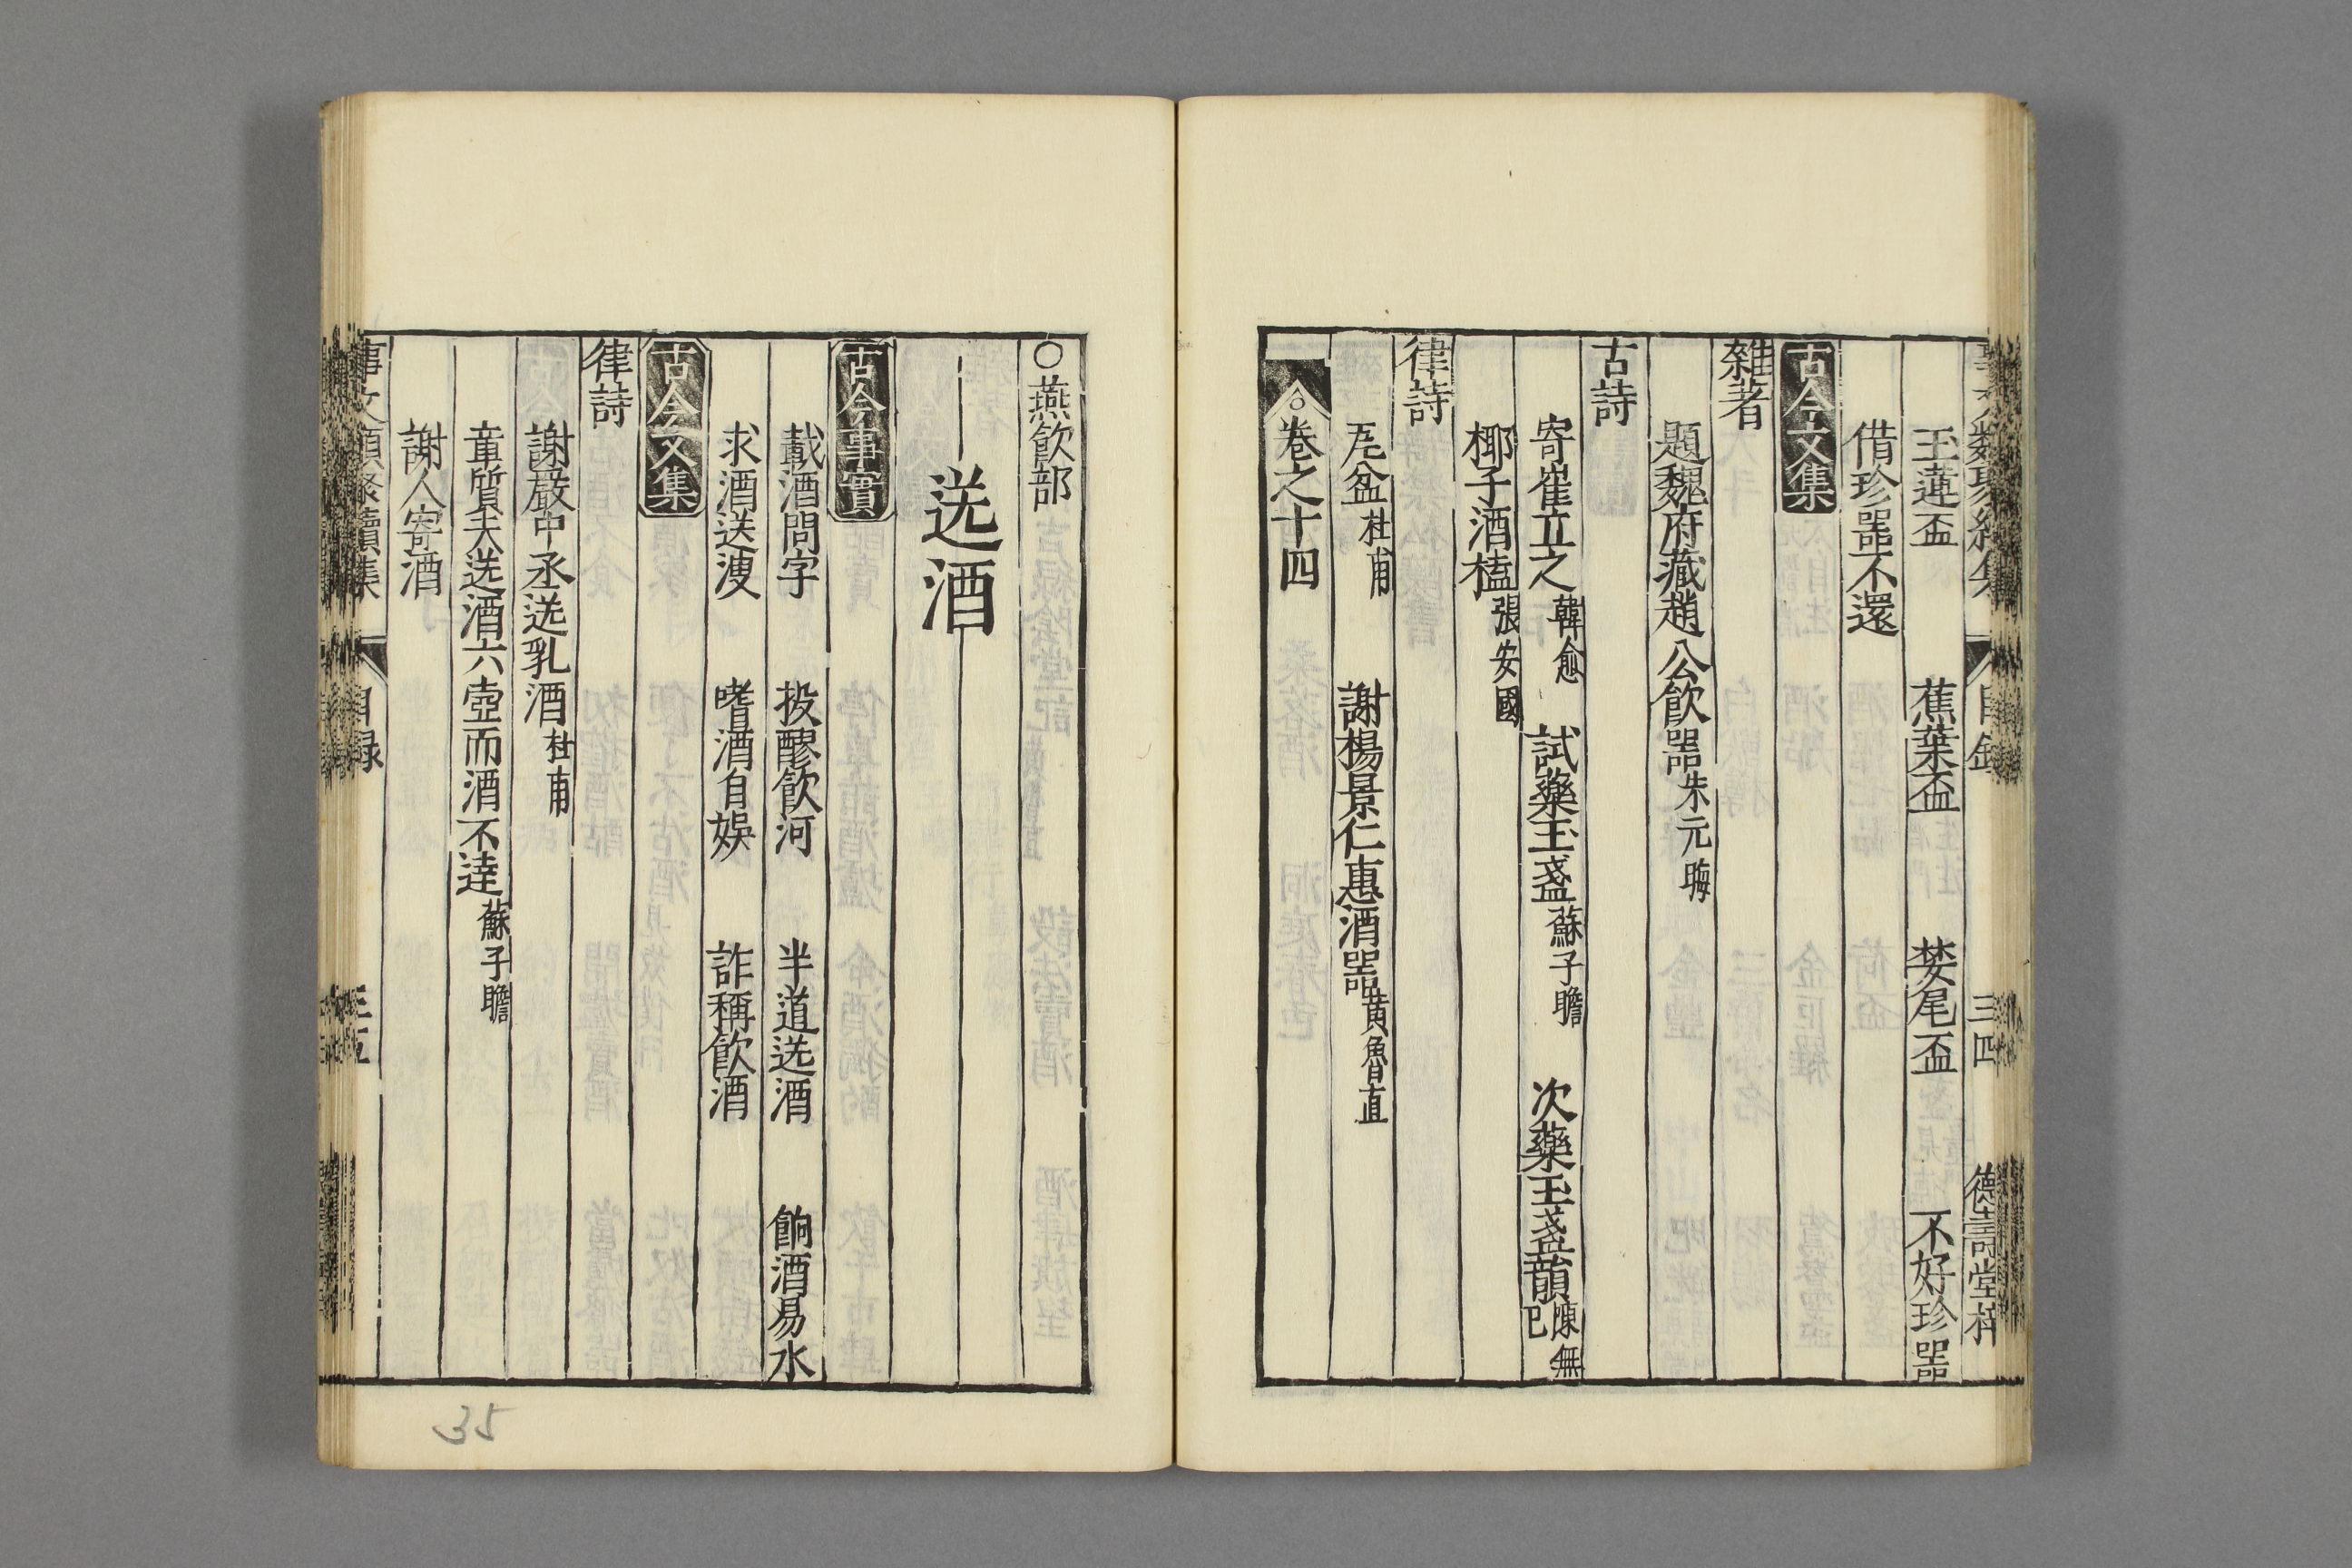 玉蓮盃　蕉葉盃　婪尾盃　不好珍噐
借珍噐不還
古今文集
雜著
題魏府藏趙公飲噐朱元晦
古詩
寄崔立之韓愈　試藥玉盞蘇子瞻　次藥玉盞韻陳無巳
椰子酒榼張安國
律詩
瓦盆杜甫　謝楊景仁惠酒噐黃魯直
○卷之十四
○燕飲部
送酒
古今事實
載酒問字　投醪飲河　半道送酒　餉酒易水
求酒送溲　嗜酒自娛　詐稱飲酒
古今文集
律詩
謝嚴中丞送乳酒杜甫
章質夫送酒六壺而酒不達蘇子瞻
謝人寄酒
目録
三四
德壽堂梓
35